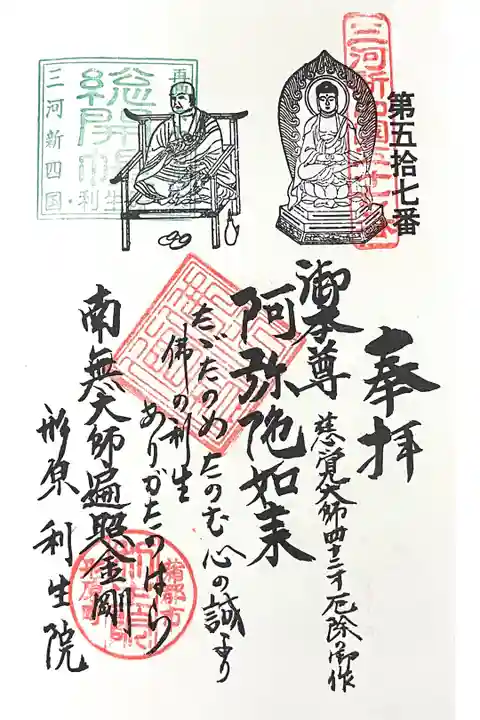 第五拾七番
奉拝
慈覚大師四十二才厄除の御作
御本尊
阿弥陀如来
たゞたのめたのむ心の誠より
佛の利生
ありがたのはらり
南無大師遍照金剛
形原利生院
再
総開帳
三河新四国・利生
蒲郡市
形原町